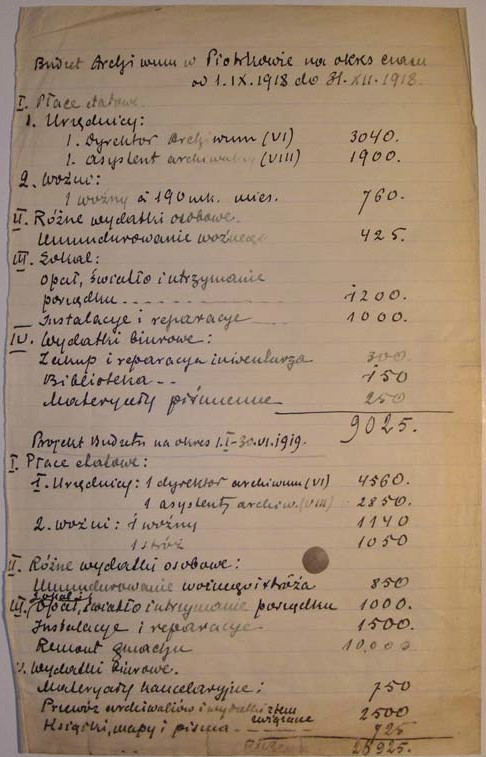 Budżet Archiwum w Piotrkowie na okres czasu
od 1.IX.1918 do 31.XII.1918.
I. Płace etatowe.
1. Urzędnicy:
1. Dyrektor Archiwum (VI) 3040.
1. asystent archiwalny (VIII) 1900.
2. Woźni:
1 woźny à 190 mk. mies. 760.
II. Różne wydatki osobowe.
Umundurowanie woźnego 425.
III. Lokal:
Opał, światło i utrzymanie
porządku 1200.
Instalacje i reparacje 1000.
IV. Wydatki biurowe:
Zakup i reparacja inwentarza 300
Biblioteka -- 150
Materyały piśmienne 250
9025.
Projekt Budżetu na okres 1.I-30.VI.1919.
I. Płace etatowe:
1. Urzędnicy: 1 dyrektor archiwum (VI) 4560.
1 asystent archiw. (VIII) 2850.
2. Woźni: 1 woźny 1140
1 stróż 1050
II. Różne wydatki osobowe:
Umundurowanie woźnego i stróża 850
III. Lokal: Opał, światło i utrzymanie porządku 1000.
Instalacje i reparacje 1500.
Remont gmachu 10,000
V. Wydatki biurowe.
Materyały kancelaryjne: 750
Przewóz archiwaliów i wydatki z tem związane 2500
Książki, mapy i pisma 725
26925.